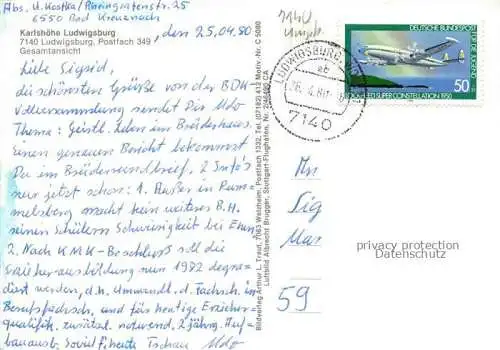 Abs. U. Kostka / Rheingrafenstr. 25
6550 Bad Kreuznach
Karlshöhe Ludwigsburg
7140 Ludwigsburg, Postfach 349
Gesamtansicht
, den 25.04.80
Liebe Sigrid,
die schönsten Grüße von der BDK-
Vollversammlung sendet Dir Udo
Thema: Geistl. Leben im Brüderhaus.
Einen genauen Bericht bekommst
Du im Brüderrundbrief. 2 Info's
nur jetzt schon: 1. Außer in Rum-
melsberg macht kein weiteres B.H.
seinen Schülern Schwierigkeit bei
2. Nach KMK-Beschluß soll die
Erzieherausbildung nun 1982 degra-
diert werden, d.h. Umwandl. d. Fachsch. in
Berufsfachsch. und für heutige Erzieher-
qualifik. zusätzl. notwend. 2 jährig. Auf-
bauausb. Soviel f. heute Tschau Udo
Bildverlag Arthur L. Traut, 7063 Welzheim, Postfach 1332, Tel. (07182) 412 Motiv-Nr. C 5080
Luftbild Albrecht Brugger, Stuttgart-Flughafen, Nr.
7140
LUDWIGSBURG
ab
7140
DEUTSCHE BUNDESPOST
FÜR DIE JUGEND
50
LOCKHEED SUPER CONSTELLATION 1950
An
Sig
Mar
59
privacy protection
Datenschutz